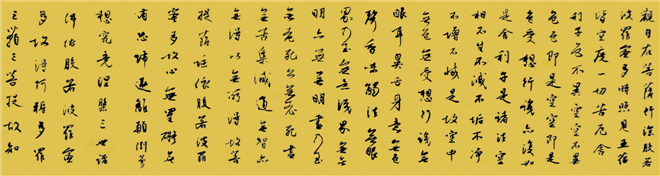 觀自在菩薩行深般若
波羅蜜多時照見五蘊
皆空度一切苦厄舍
利子色不異空空不異
色色即是空空即是
色受想行識亦復如
是舍利子是諸法空
相不生不滅不垢不淨
不增不減是故空中
無色無受想行識無
眼耳鼻舌身意無色
聲香味觸法無眼
界乃至無意識界無
明亦無無明盡乃至
無老死亦無老死盡
無苦集滅道無智亦
無得以無所得故菩
提薩埵依般若波羅
蜜多故心無罣礙無
有恐怖遠離顛倒夢
想究竟涅槃三世諸
佛依般若波羅蜜
多故得阿耨多羅
三藐三菩提故知